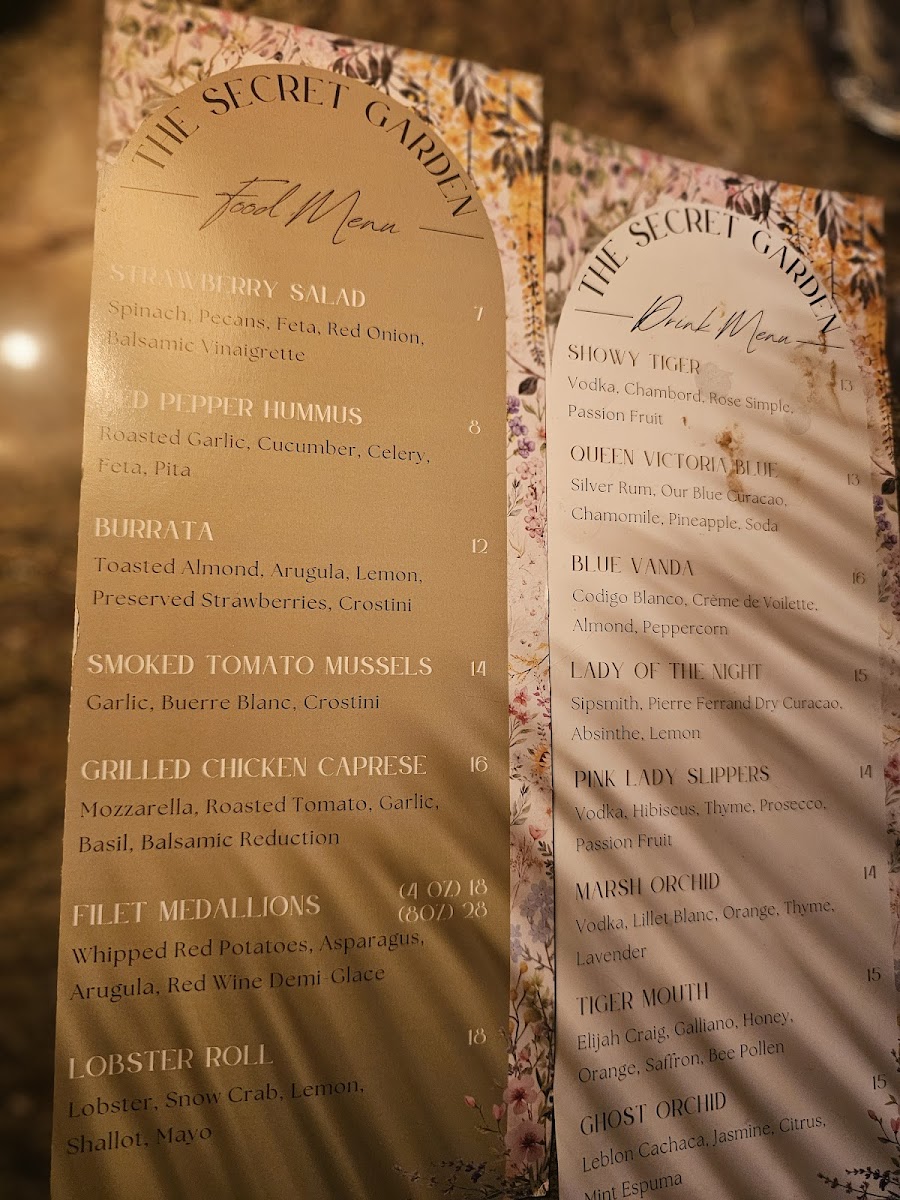 THE SECRET GARDEN
Food Menu
STRAWBERRY SALAD 7
Spinach, Pecans, Feta, Red Onion,
Balsamic Vinaigrette
RED PEPPER HUMMUS 8
Roasted Garlic, Cucumber, Celery,
Feta, Pita
BURRATA 12
Toasted Almond, Arugula, Lemon,
Preserved Strawberries, Crostini
SMOKED TOMATO MUSSELS 14
Garlic, Buerre Blanc, Crostini
GRILLED CHICKEN CAPRESE 16
Mozzarella, Roasted Tomato, Garlic,
Basil, Balsamic Reduction
FILET MEDALLIONS (4 OZ) 18
(8OZ) 28
Whipped Red Potatoes, Asparagus,
Arugula, Red Wine Demi-Glace
LOBSTER ROLL 18
Lobster, Snow Crab, Lemon,
Shallot, Mayo
THE SECRET GARDEN
Drink Menu
SHOWY TIGER 13
Vodka, Chambord, Rose Simple,
Passion Fruit
QUEEN VICTORIA BLUE 13
Silver Rum, Our Blue Curacao,
Chamomile, Pineapple, Soda
BLUE VANDA 16
Codigo Blanco, Crème de Voilette,
Almond, Peppercorn
LADY OF THE NIGHT 15
Sipsmith, Pierre Ferrand Dry Curacao,
Absinthe, Lemon
PINK LADY SLIPPERS 14
Vodka, Hibiscus, Thyme, Prosecco,
Passion Fruit
MARSH ORCHID 14
Vodka, Lillet Blanc, Orange, Thyme,
Lavender
TIGER MOUTH 15
Elijah Craig, Galliano, Honey,
Orange, Saffron, Bee Pollen
GHOST ORCHID 15
Leblon Cachaca, Jasmine, Citrus,
Mint Espuma